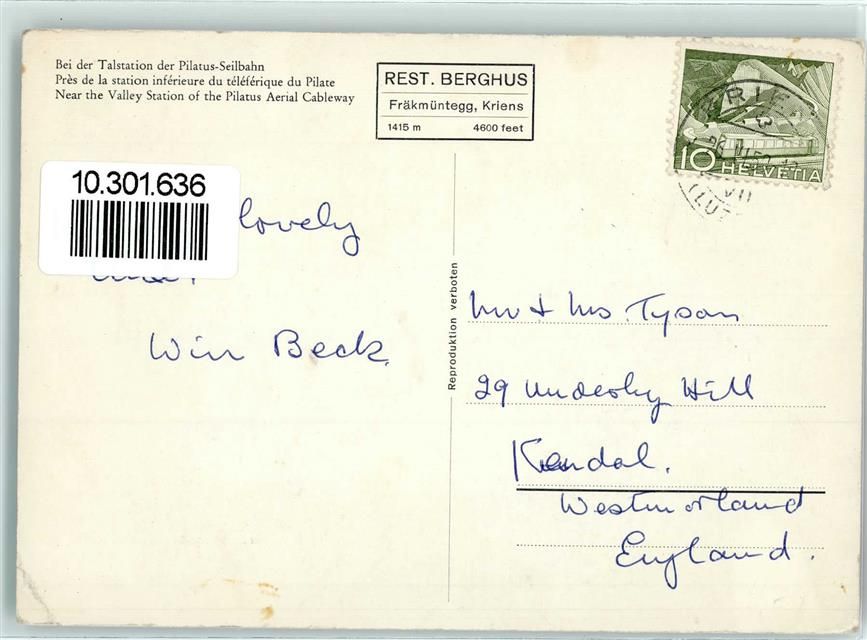 Bei der Talstation der Pilatus-Seilbahn
Près de la station inférieure du téléférique du Pilate
Near the Valley Station of the Pilatus Aerial Cableway
REST. BERGHUS
Fräkmüntegg, Kriens
1415 m 4600 feet
10 HELVETIA
10.301.636
lovely
Win Beck.
Reproduktion verboten
Mr & Mrs. Tyson
29 Underley Hill
Kendal.
Westmorland
England.